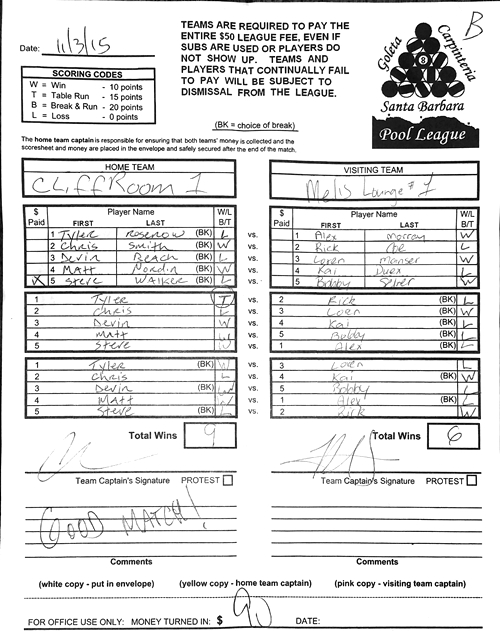 TEAMS ARE REQUIRED TO PAY THE
ENTIRE $50 LEAGUE FEE, EVEN IF
SUBS ARE USED OR PLAYERS DO
NOT SHOW UP. TEAMS AND
PLAYERS THAT CONTINUALLY FAIL
TO PAY WILL BE SUBJECT TO
DISMISSAL FROM THE LEAGUE.
B
Date: 11/3/15
SCORING CODES
W = Win - 10 points
T = Table Run - 15 points
B = Break & Run - 20 points
L = Loss - 0 points
Goleta Carpinteria
8
Santa Barbara
Pool League
(BK = choice of break)
The home team captain is responsible for ensuring that both teams' money is collected and the
scoresheet and money are placed in the envelope and safely secured after the end of the match.
HOME TEAM VISITING TEAM
CLiff Room 1 Mels Lounge # 1
$ Paid Player Name FIRST LAST W/L B/T $ Paid Player Name FIRST LAST W/L B/T
1 Tyler Rosenow (BK) L vs. 1 Alex Morray W
2 Chris Smith (BK) W vs. 2 Rick L
3 Devin Beach (BK) L vs. 3 Loren Manser W
4 Matt Nordin (BK) W vs. 4 Kai L
X 5 Steve Walker (BK) L vs. 5 Bobby W
1 Tyler T vs. 2 Rick (BK) L
2 Chris L vs. 3 Loren (BK) W
3 Devin W vs. 4 Kai (BK) L
4 Matt W vs. 5 Bobby (BK) L
5 Steve W vs. 1 Alex (BK) L
1 Tyler (BK) W vs. 3 Loren L
2 Chris L vs. 4 Kai (BK) W
3 Devin (BK) W vs. 5 Bobby L
4 Matt W vs. 1 Alex (BK) L
5 Steve (BK) L vs. 2 Rick W
Total Wins 9 Total Wins 6
Team Captain's Signature PROTEST Team Captain's Signature PROTEST
GOOD MATCH!
Comments Comments
(white copy - put in envelope) (yellow copy - home team captain) (pink copy - visiting team captain)
FOR OFFICE USE ONLY: MONEY TURNED IN: $ 90 DATE: